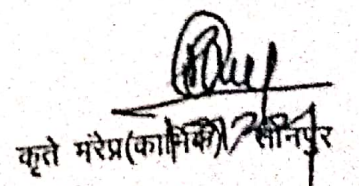 कृते मंरेप्र(कार्मिक)/सोनपुर